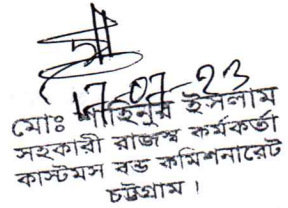 17-07-23
মোঃ শাহিনুর ইসলাম
সহকারী রাজস্ব কর্মকর্তা
কাস্টমস বন্ড কমিশনারেট
চট্টগ্রাম।